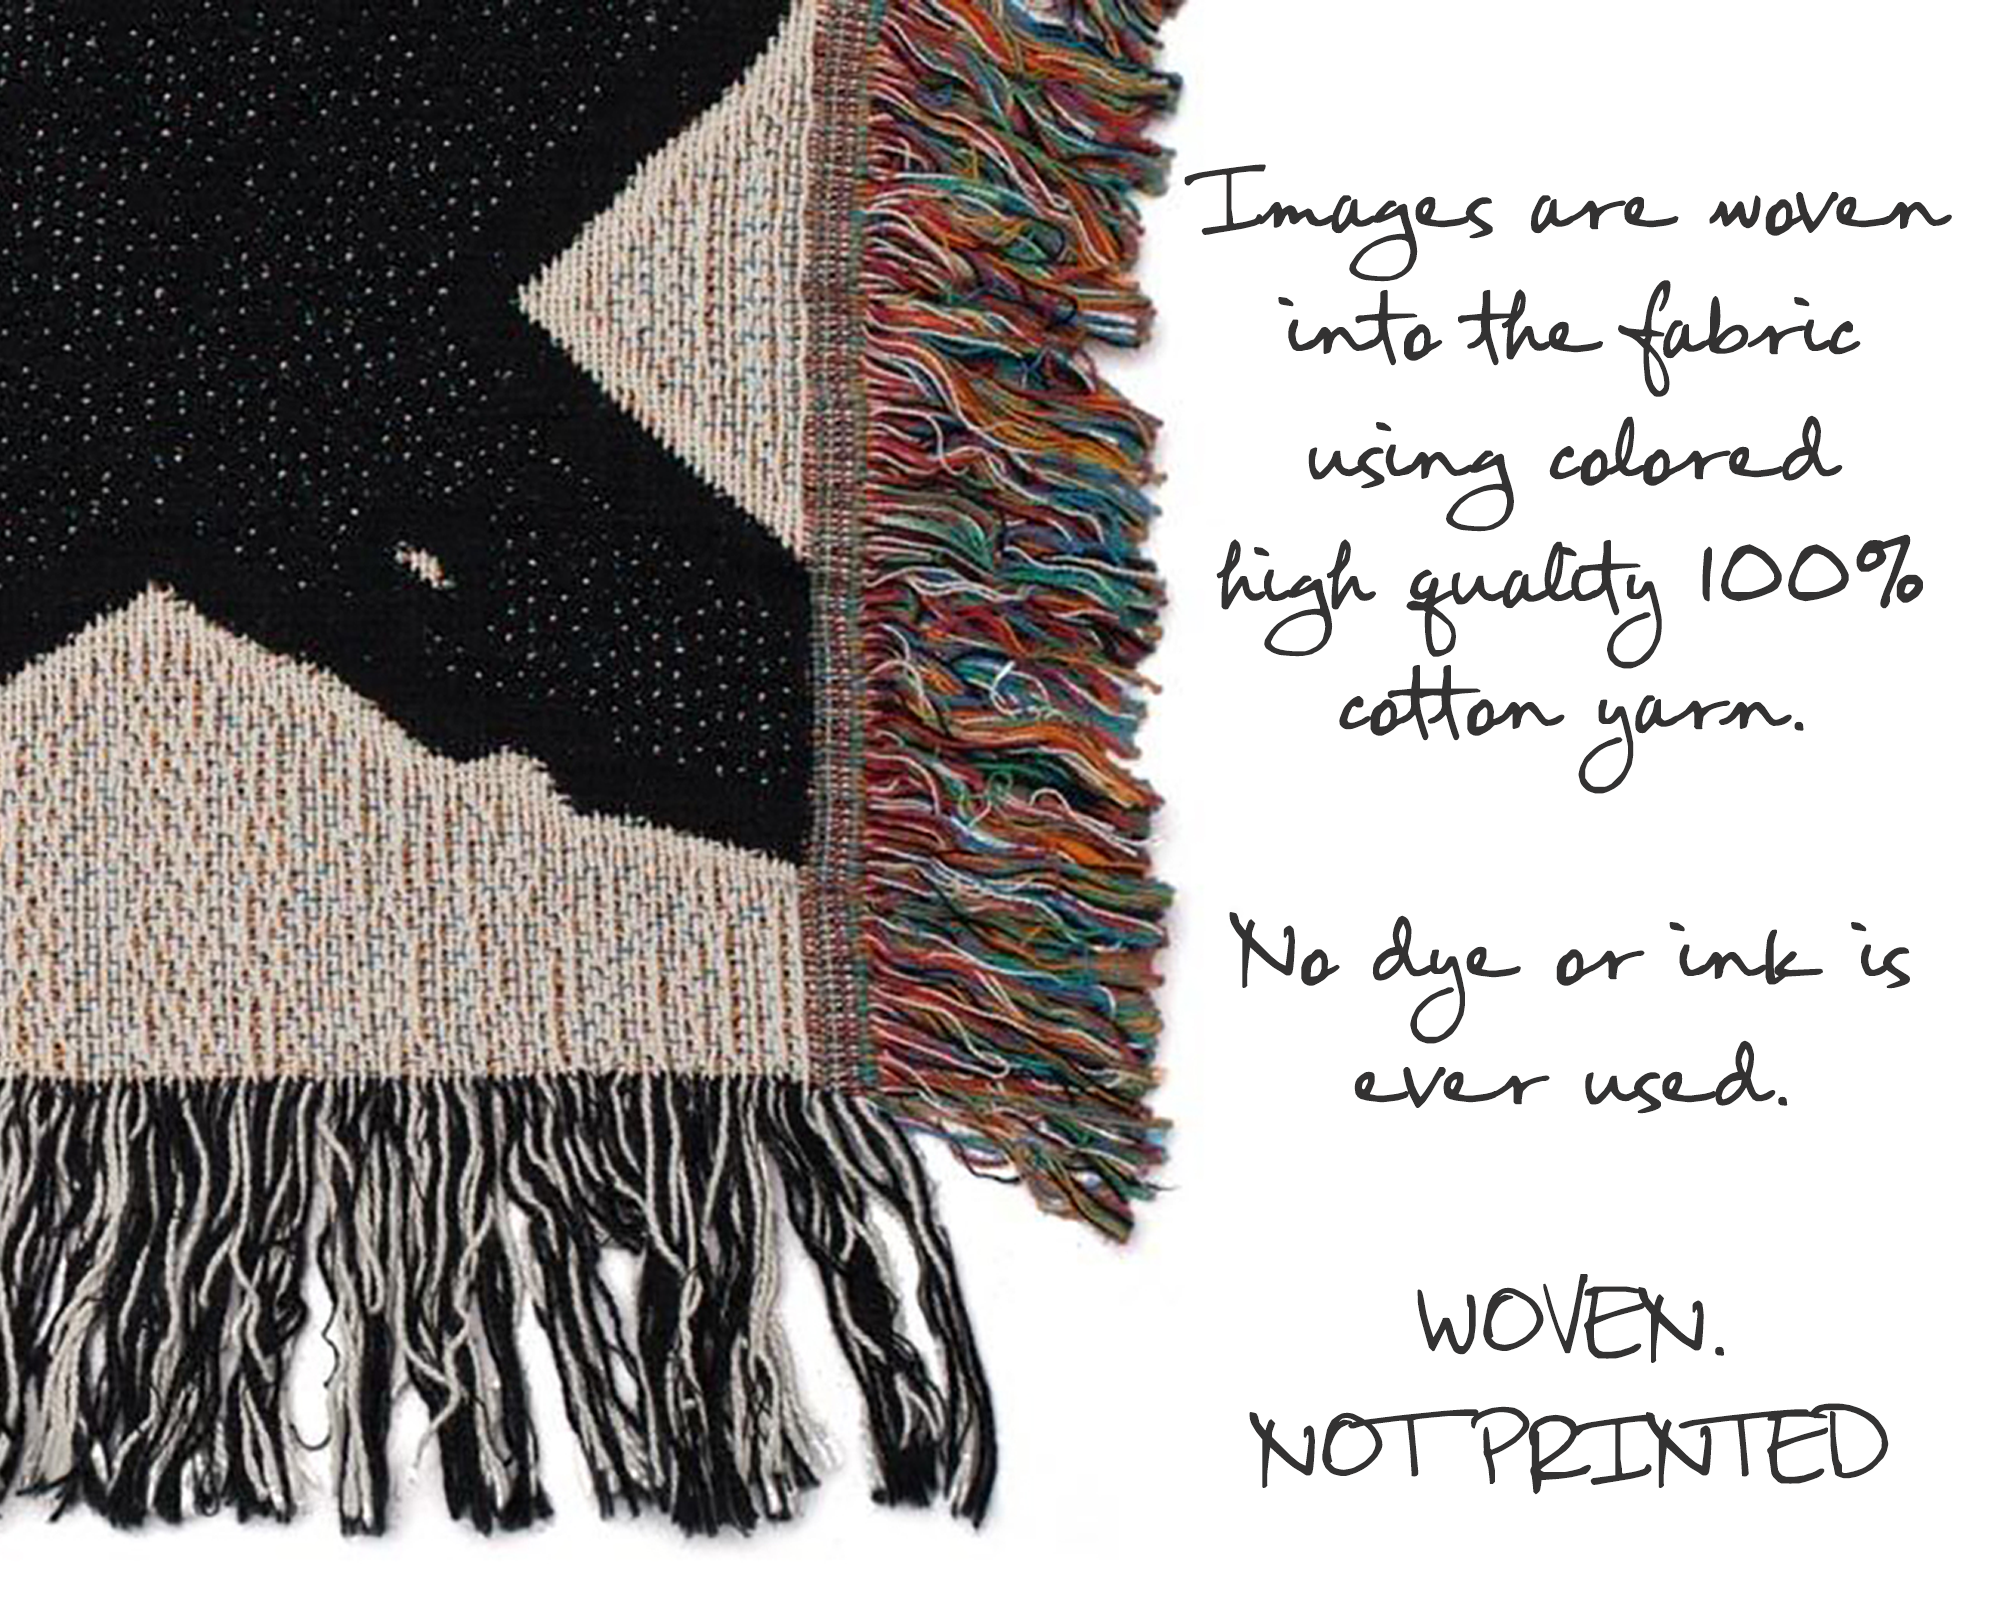 Images are woven
into the fabric
using colored
high quality 100%
cotton yarn.
No dye or ink is
ever used.
WOVEN.
NOT PRINTED